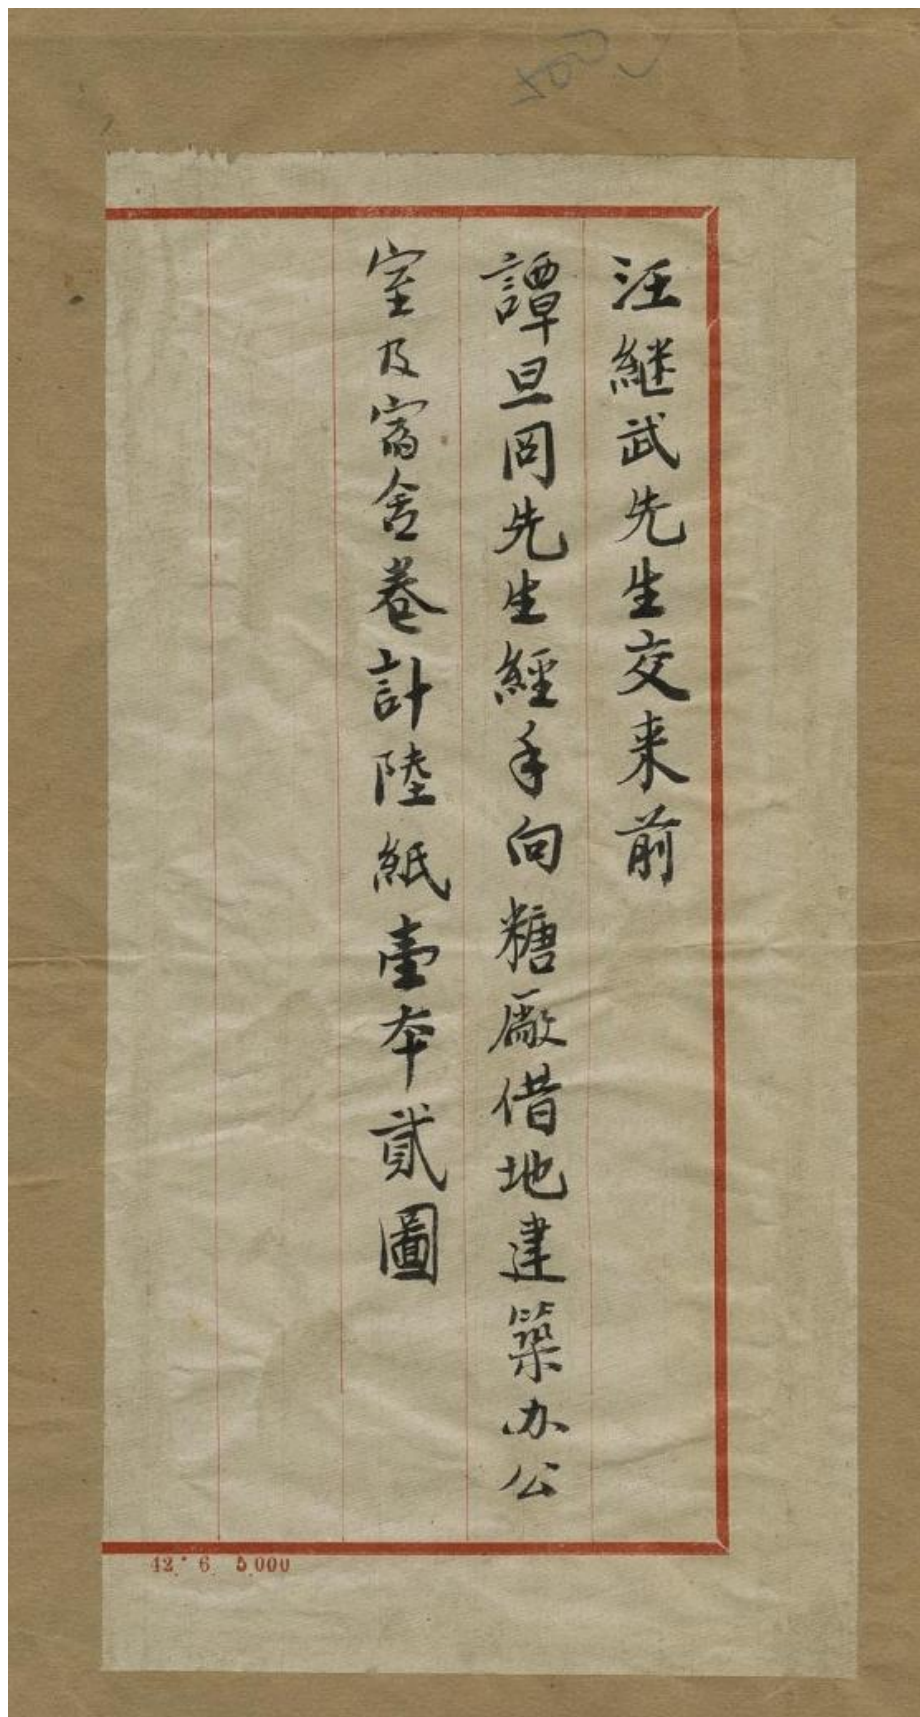 汪継武先生交来前
譚旦冏先生經手向糖廠借地建築办公
室及寓舍卷計陸紙壹本貳圖
42. 6. 5.000